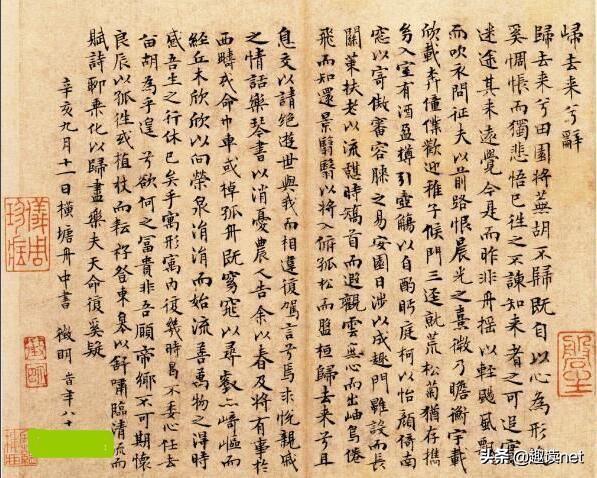 歸去来兮辭
歸去来兮田園將蕪胡不歸既自以心為形
奚惆悵而獨悲悟已往之不諫知来者之可追實
迷途其未遠覺今是而昨非舟摇以輕颺風飄
而吹衣問征夫以前路恨晨光之熹微乃瞻衡宇載
欣載奔僮僕歡迎稚子候門三逕就荒松菊猶存攜
幼入室有酒盈樽引壺觴以自酌眄庭柯以怡顔倚南
窓以寄傲審容膝之易安園日涉以成趣門雖設而長
關策扶老以流憩時矯首而遐觀雲無心而出岫鳥倦
飛而知還景翳翳以將入撫孤松而盤桓歸去来兮且
息交以請絶遊世與我而相違復駕言兮焉求悅親戚
之情話樂琴書以消憂農人告余以春及將有事於
西疇或命巾車或棹孤舟既窈窕以尋壑亦崎嶇而
經丘木欣欣以向榮泉涓涓而始流善萬物之得時
感吾生之行休已矣乎寓形寓内復幾時曷不委心任去
留胡為乎遑兮欲何之富貴非吾願帝鄉不可期懷
良辰以孤往或植杖而耘耔登東皋以舒嘯臨清流而
賦詩聊乘化以歸盡樂夫天命復奚疑
辛亥九月十一日橫塘舟中書 徵明 時年八十
头条 @趣读net